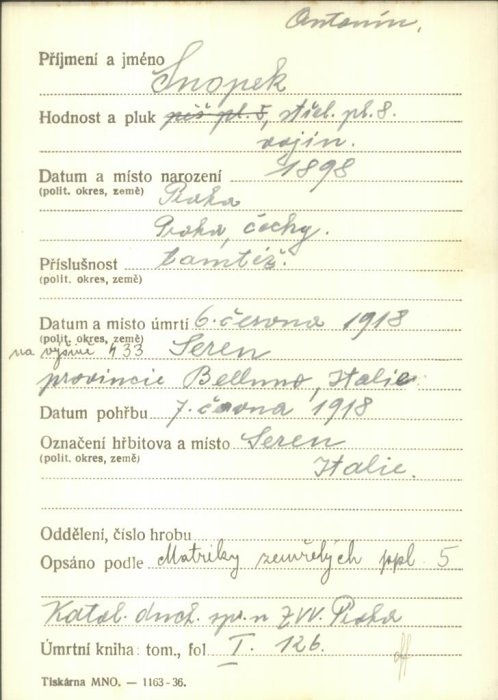 Antonín,
Příjmení a jméno Snopek
Hodnost a pluk pěš pl. 8, střel. pl. 8.
vojín.
Datum a místo narození 1898
(polit. okres, země) Praha
Praha, Čechy.
Příslušnost tamtéž.
(polit. okres, země)
Datum a místo úmrtí 6. června 1918
(polit. okres, země)
na výšině 433 Seren
provincie Belluno, Italie
Datum pohřbu 7. června 1918
Označení hřbitova a místo Seren
(polit. okres, země) Italie.
Oddělení, číslo hrobu
Opsáno podle Matriky zemřelých ppl. 5
Katol. duch. sp. n ZVV. Praha
Úmrtní kniha: tom., fol I. 126.
Tiskárna MNO. — 1163-36.